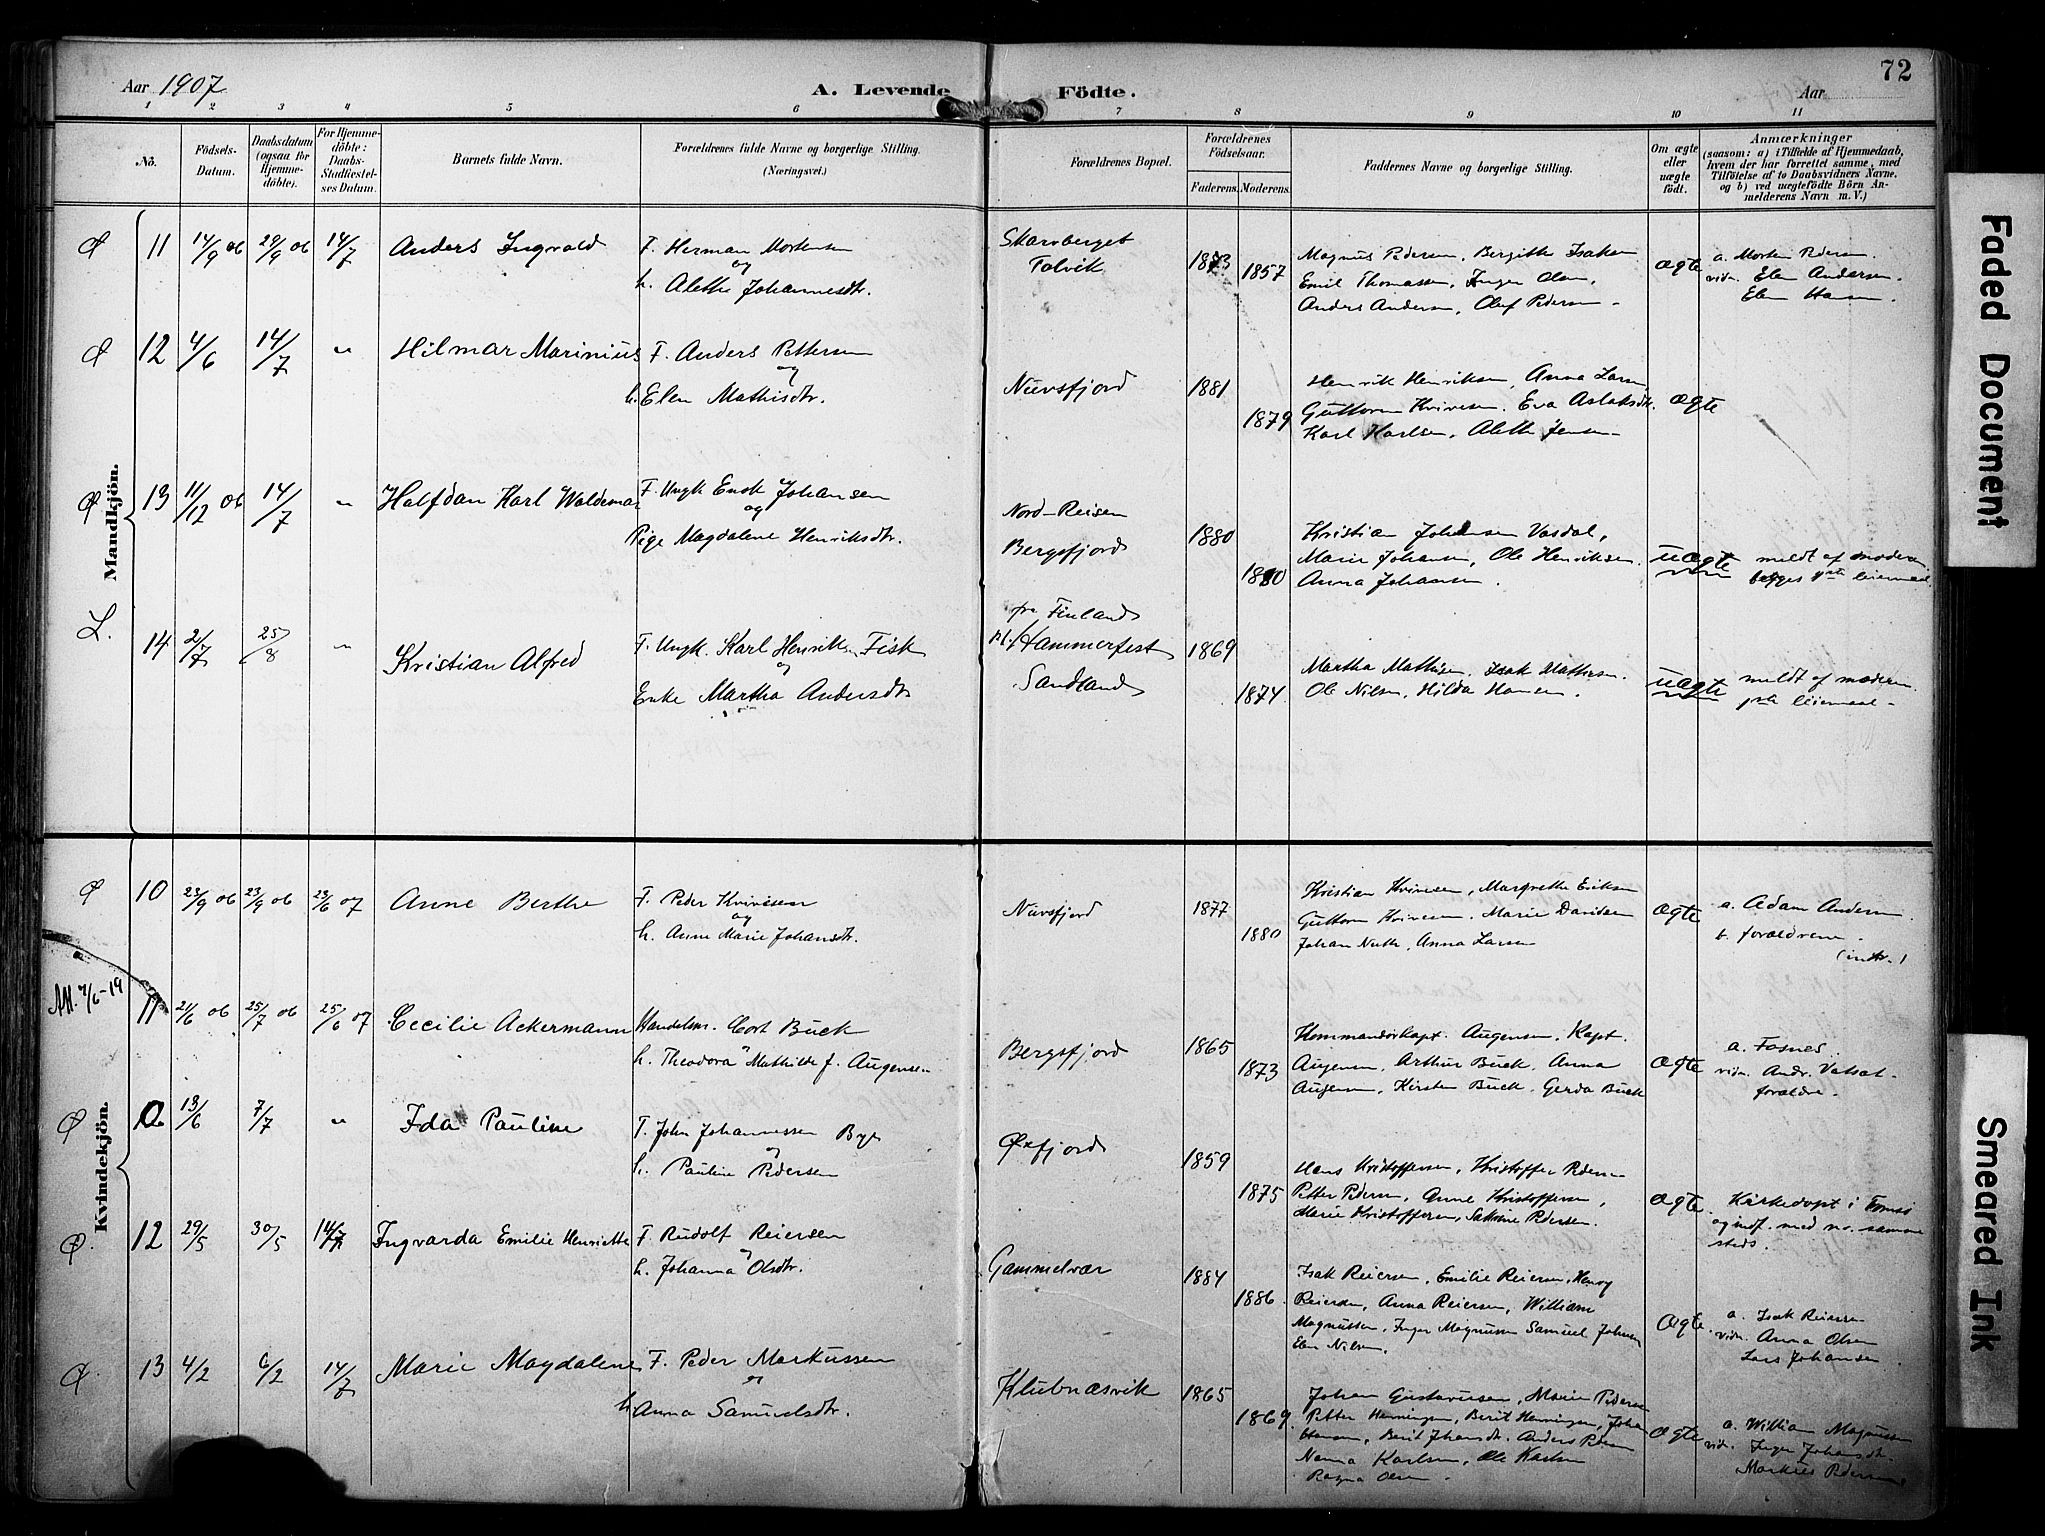 72
Aar 1907
A. Levende Födte.
Aar
1 2 3 4 5 6 7 8 9 10 11
No.
Födsels-Datum.
Daabsdatum (ogsaa for Hjemme-döbte).
For Hjemme-döbte: Daabs-Stadfæstel-ses Datum.
Barnets fulde Navn.
Forældrenes fulde Navne og borgerlige Stilling. (Næringsvei.)
Forældrenes Bopæl.
Forældrenes Födselsaar.
Faderens. Moderens.
Faddernes Navne og borgerlige Stilling.
Om ægte eller uægte födt.
Anmærkninger
(saasom: a) i Tilfælde af Hjemmedaab,
hvem der har forrettet samme, med
Tilföielse af to Daabsvidners Navne.
og b) ved uægtefödte Börn An-
melderens Navn m. V.)
Mandkjön.
Ø 11 14/9 06 29/9 06 14/7 Anders Ingvald
F. Herman Mortensen
og
h. Alethe Johannesdtr.
Skarvberget
Talvik
1873 1857
Magnus Pedersen, Bergithe Isaksen
Emil Thomassen, Inger Olsen,
Anders Andersen, Oluf Pedersen
ægte
a. Morten Pedersen.
vidn. Elen Andersen.
Elen Hansen.
Ø 12 4/6 14/7 " Hilmar Marinius
F. Anders Pettersen
og
h. Elen Mathisdtr.
Nuvsfjord
1881 1879
Henrik Henriksen, Anna Larsen
Guttorm Kvivesen. Eva Aslaksdtr.
Karl Karlsen, Alethe Jensen
ægte
Ø 13 11/12 06 14/7 " Halfdan Karl Waldemar
F. Ungk. Enok Johansen
og
Pige Magdalene Henriksdtr.
Nord-Reisen
Bergsfjord
1880 1880
Kristian Johansen Vasdal,
Marie Johansen, Ole Henriksen.
Anna Johansen.
uægte
meldt af moderen
begges 1ste leiermaal
L. 14 2/7 25/8 " Kristian Alfred
F. Ungk. Karl Henriksen Fisk
og
Enke Martha Andersdtr
fra Finland
Hammerfest
Sandland
1869 1874
Martha Mathisen, Isak Mathisen.
Ole Nilsen, Hilda Hansen.
uægte
meldt af moderen.
1ste leiermaal
Kvindekjön.
Ø 10 23/9 06 23/9 06 23/6 07 Anne Berthe
F. Peder Kvivesen
og
h. Anne Marie Johansdtr.
Nuvsfjord
1877 1880
Kristian Kvivesen, Margrethe Eriksen
Guttorm Kvivesen, Marie Davidsen
Johan Nuth, Anna Larsen
ægte
a. Adam Andersen.
f. forældrene.
Att. 7/6-19
11 21/6 06 25/7 06 25/6 07 Cecilie Ackermann
Handelsm. Cort Buck
h. Theodora Mathilde f. Augensen
Bergsfjord
1865 1873
Kommandørkapt. Augensen, Kapt.
Augensen, Arthur Buck, Anna
Augensen, Kirsten Buck, Gerda Buck
ægte
a. Fosnes.
vidn. Andr. Vatsat.
forældre.
Ø 13/6 7/7 " Ida Pauline
F. John Johannessen Bye
og
h. Pauline Pedersen
Øxfjord
1859 1875
Hans Kristoffersen, Kristoffer Pedersen
Petter Pedersen, Anne Kristoffersen,
Marie Kristoffersen, Pedersen.
ægte
Kirkedøpt i Tromsø
og indf. med no. samme
steds.
Ø 12 29/5 30/5 14/7 Ingvarda Emilie Henriette
F. Rudolf Reiersen
og
h. Johanna Olsdtr.
Gammelvær
1884 1886
Isak Reiersen, Emilie Reiersen, Henry
Reiersen, Anna Reiersen, William
Magnussen, Inger Magnussen Samuel Johnsen
Elen Nilsen.
ægte
a. Isak Reiersen
vidn. Anna Olsen
Lars Johansen.
Ø 13 4/2 6/2 14/7 Marie Magdalene
F. Peder Markussen
og
h. Anna Samuelsdtr.
Klubnæsvik
1865 1869
Johan Gustavusen, Marie Pedersen
Petter Henningsen, Berit Henningsen, Johan
Hansen, Berit Johansdtr. Anders Pedersen
Nanna Karlsen, Ole Karlsen
Ragna Olsen.
ægte
a. William Magnussen
vidn. Inger Johansdtr.
Markus Pedersen
Faded Document
Smeared Ink